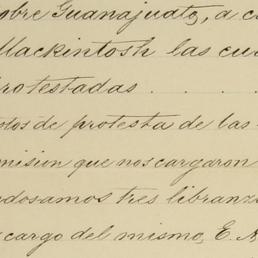 sobre Guanajuato, a c
Mackintosh las cu
protestadas . . . .
stos de protesta de las
mision que nos cargaron
dosamos tres libranz
cargo del mismo, E. M